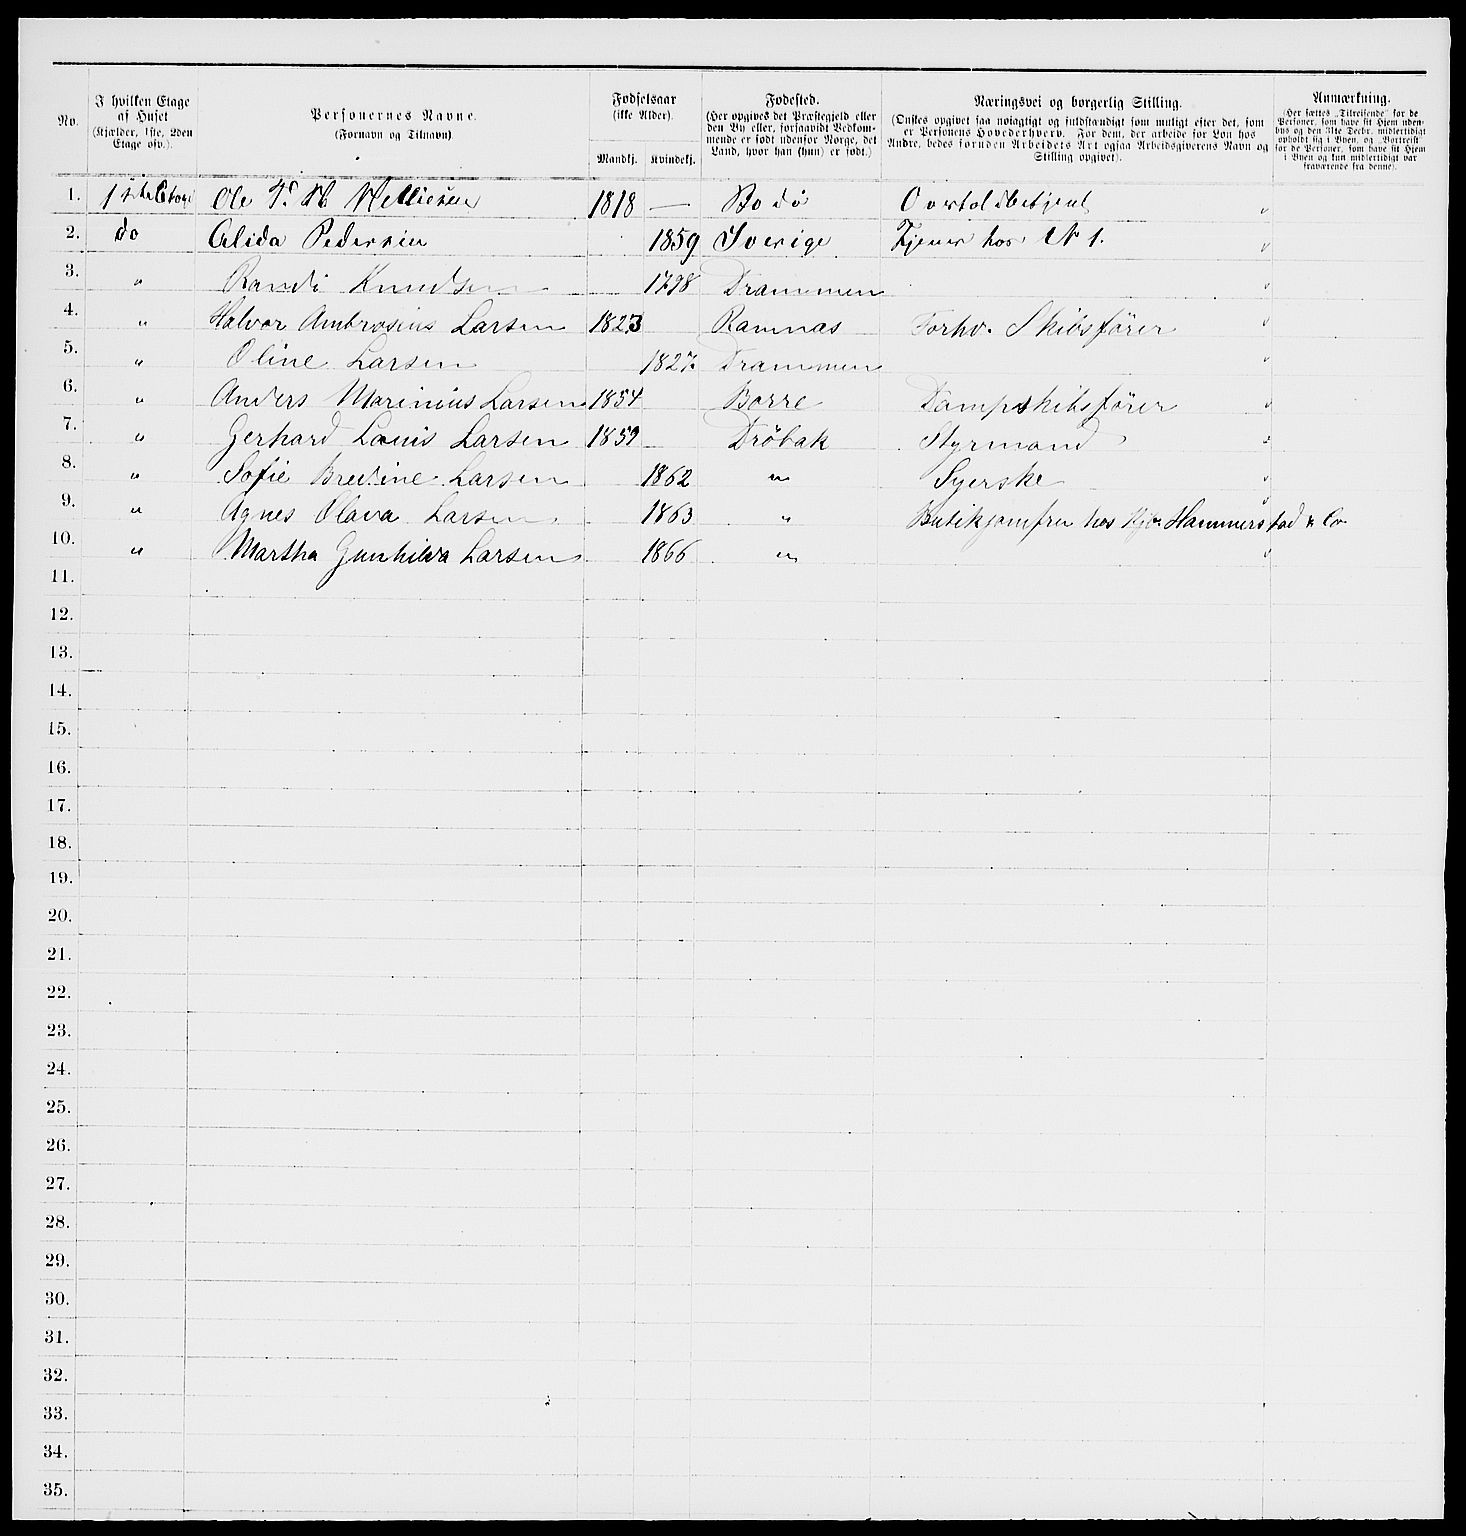 No.
I hvilken Etage af Huset (Kjælder, 1ste, 2den Etage osv.).
Personernes Navne. (Fornavn og Tilnavn)
Fødselsaar (ikke Alder). Mandkj. Kvindekj.
Fødested. (Her opgives det Præstegjeld eller den By eller, forsaavidt Vedkommende er født udenfor Norge, det Land, hvor han (hun) er født.)
Næringsvei og borgerlig Stilling. (Ønskes opgivet saa nøiagtigt og fuldstændigt som muligt efter det, som er Personens Hovederhverv. For dem, der arbeide for Løn hos Andre, bedes foruden Arbeidets Art ogsaa Arbeidsgiverens Navn og Stilling opgivet).
Anmærkning. (Her sættes „Tilreisende" for de Personer, som have sit Hjem udenbys og den 31te Decbr. midlertidigt opholdt sig i Byen, og „Bortreist" for de Personer, som have sit Hjem i Byen og kun midlertidigt var fraværende fra denne).
1. 1ste Etage Ole 1818 — Bodö Overtoldbetjent
2. do Alida Pedersen 1859 Sverige Tjener hos N 1.
3. " Randi Knudsen 1798 Drammen
4. " Halvor Ambrosius Larsen 1823 Ramnas Forhv. Skibsfører
5. " Oline Larsen 1827 Drammen
6. " Anders Marinius Larsen 1854 Borre Dampskibsfører
7. " Gerhard Louis Larsen 1859 Dröbak Styrmand
8. " Sofie Bredine Larsen 1862 " Syerske
9. " Agnes Olava Larsen 1863 " Butikjomfru hos Hammerstad & Co
10. " Martha Gunhilda Larsen 1866 "
11.
12.
13.
14.
15.
16.
17.
18.
19.
20.
21.
22.
23.
24.
25.
26.
27.
28.
29.
30.
31.
32.
33.
34.
35.